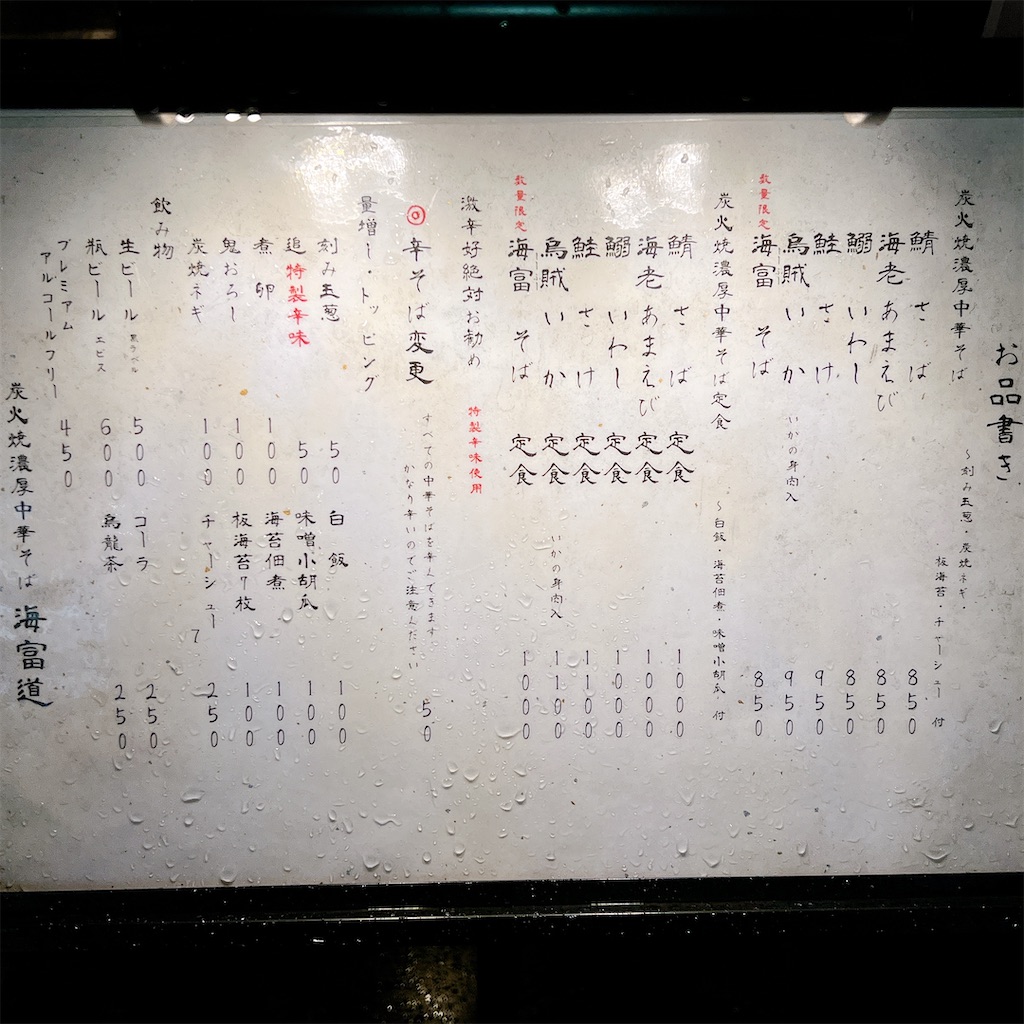 お品書き
炭火焼濃厚中華そば
～刻み玉葱・炭焼ネギ・
板海苔・チャーシュー 付
鯖 さば 850
海老 あまえび 850
鰯 いわし 850
鮭 さけ 950
烏賊 いか いかの身肉入 950
数量限定 海富 そば 850
炭火焼濃厚中華そば定食 ～白飯・海苔佃煮・味噌小胡瓜 付
鯖 さば 定食 1000
海老 あまえび 定食 1000
鰯 いわし 定食 1000
鮭 さけ 定食 1100
烏賊 いか 定食 いかの身肉入 1100
数量限定 海富 そば 定食 1000
激辛好絶対お勧め 特製辛味使用
◎辛そば変更 すべての中華そばを辛くできます。
かなり辛いのでご注意ください 50
量増し・トッピング
刻み玉葱 50 白飯 100
追特製辛味 50 味噌小胡瓜 100
煮卵 100 海苔佃煮 100
鬼おろし 100 板海苔7枚 100
炭焼ネギ 100 チャーシュー 7 250
飲み物
生ビール 黒ラベル 500 コーラ 250
瓶ビール エビス 600 烏龍茶 250
プレミアム
アルコールフリー 450
炭火焼濃厚中華そば 海富道